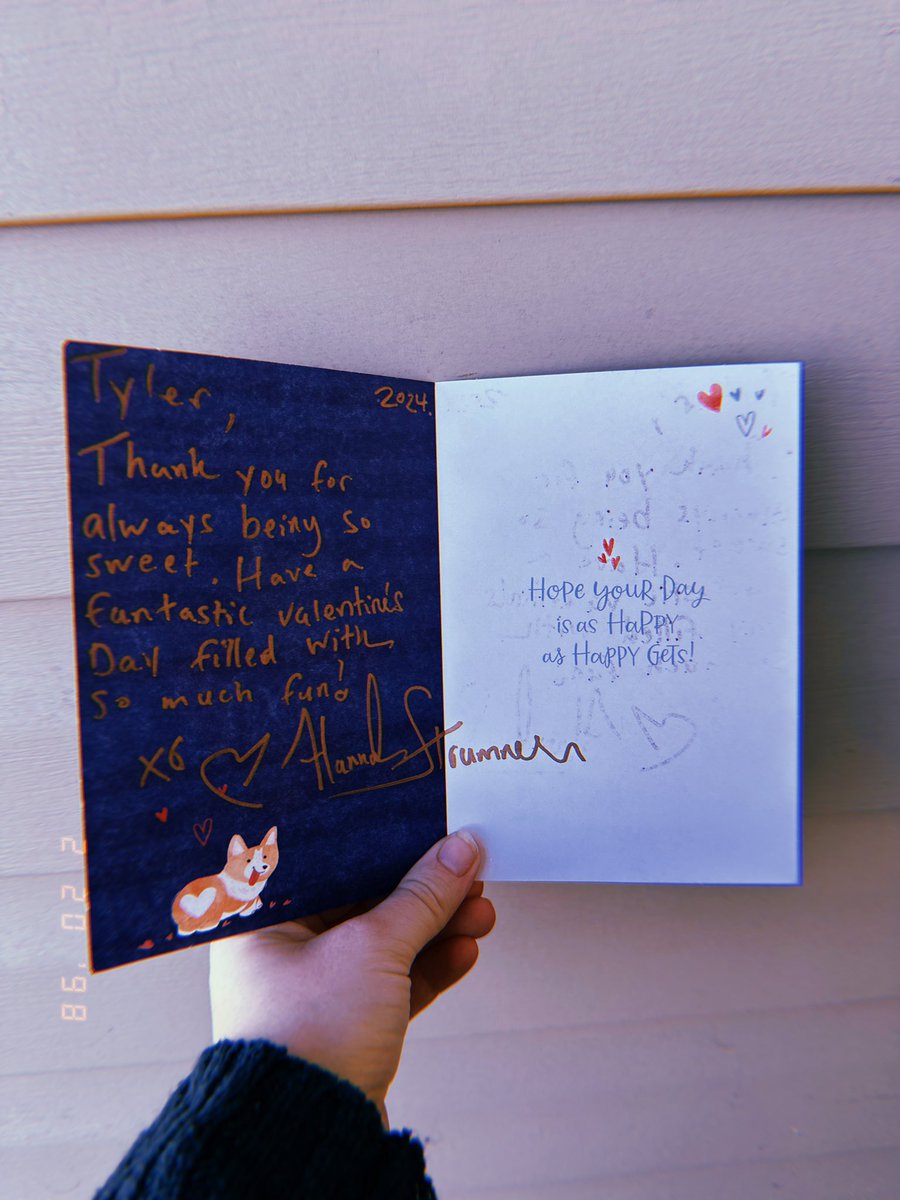 Tyler,
2024.
Thank you for
always being so
sweet. Have a
fantastic valentine's
Day filled with
so much fun!
Hannah
Hope your Day
is as Happy
as Happy Gets!
2 20 '98